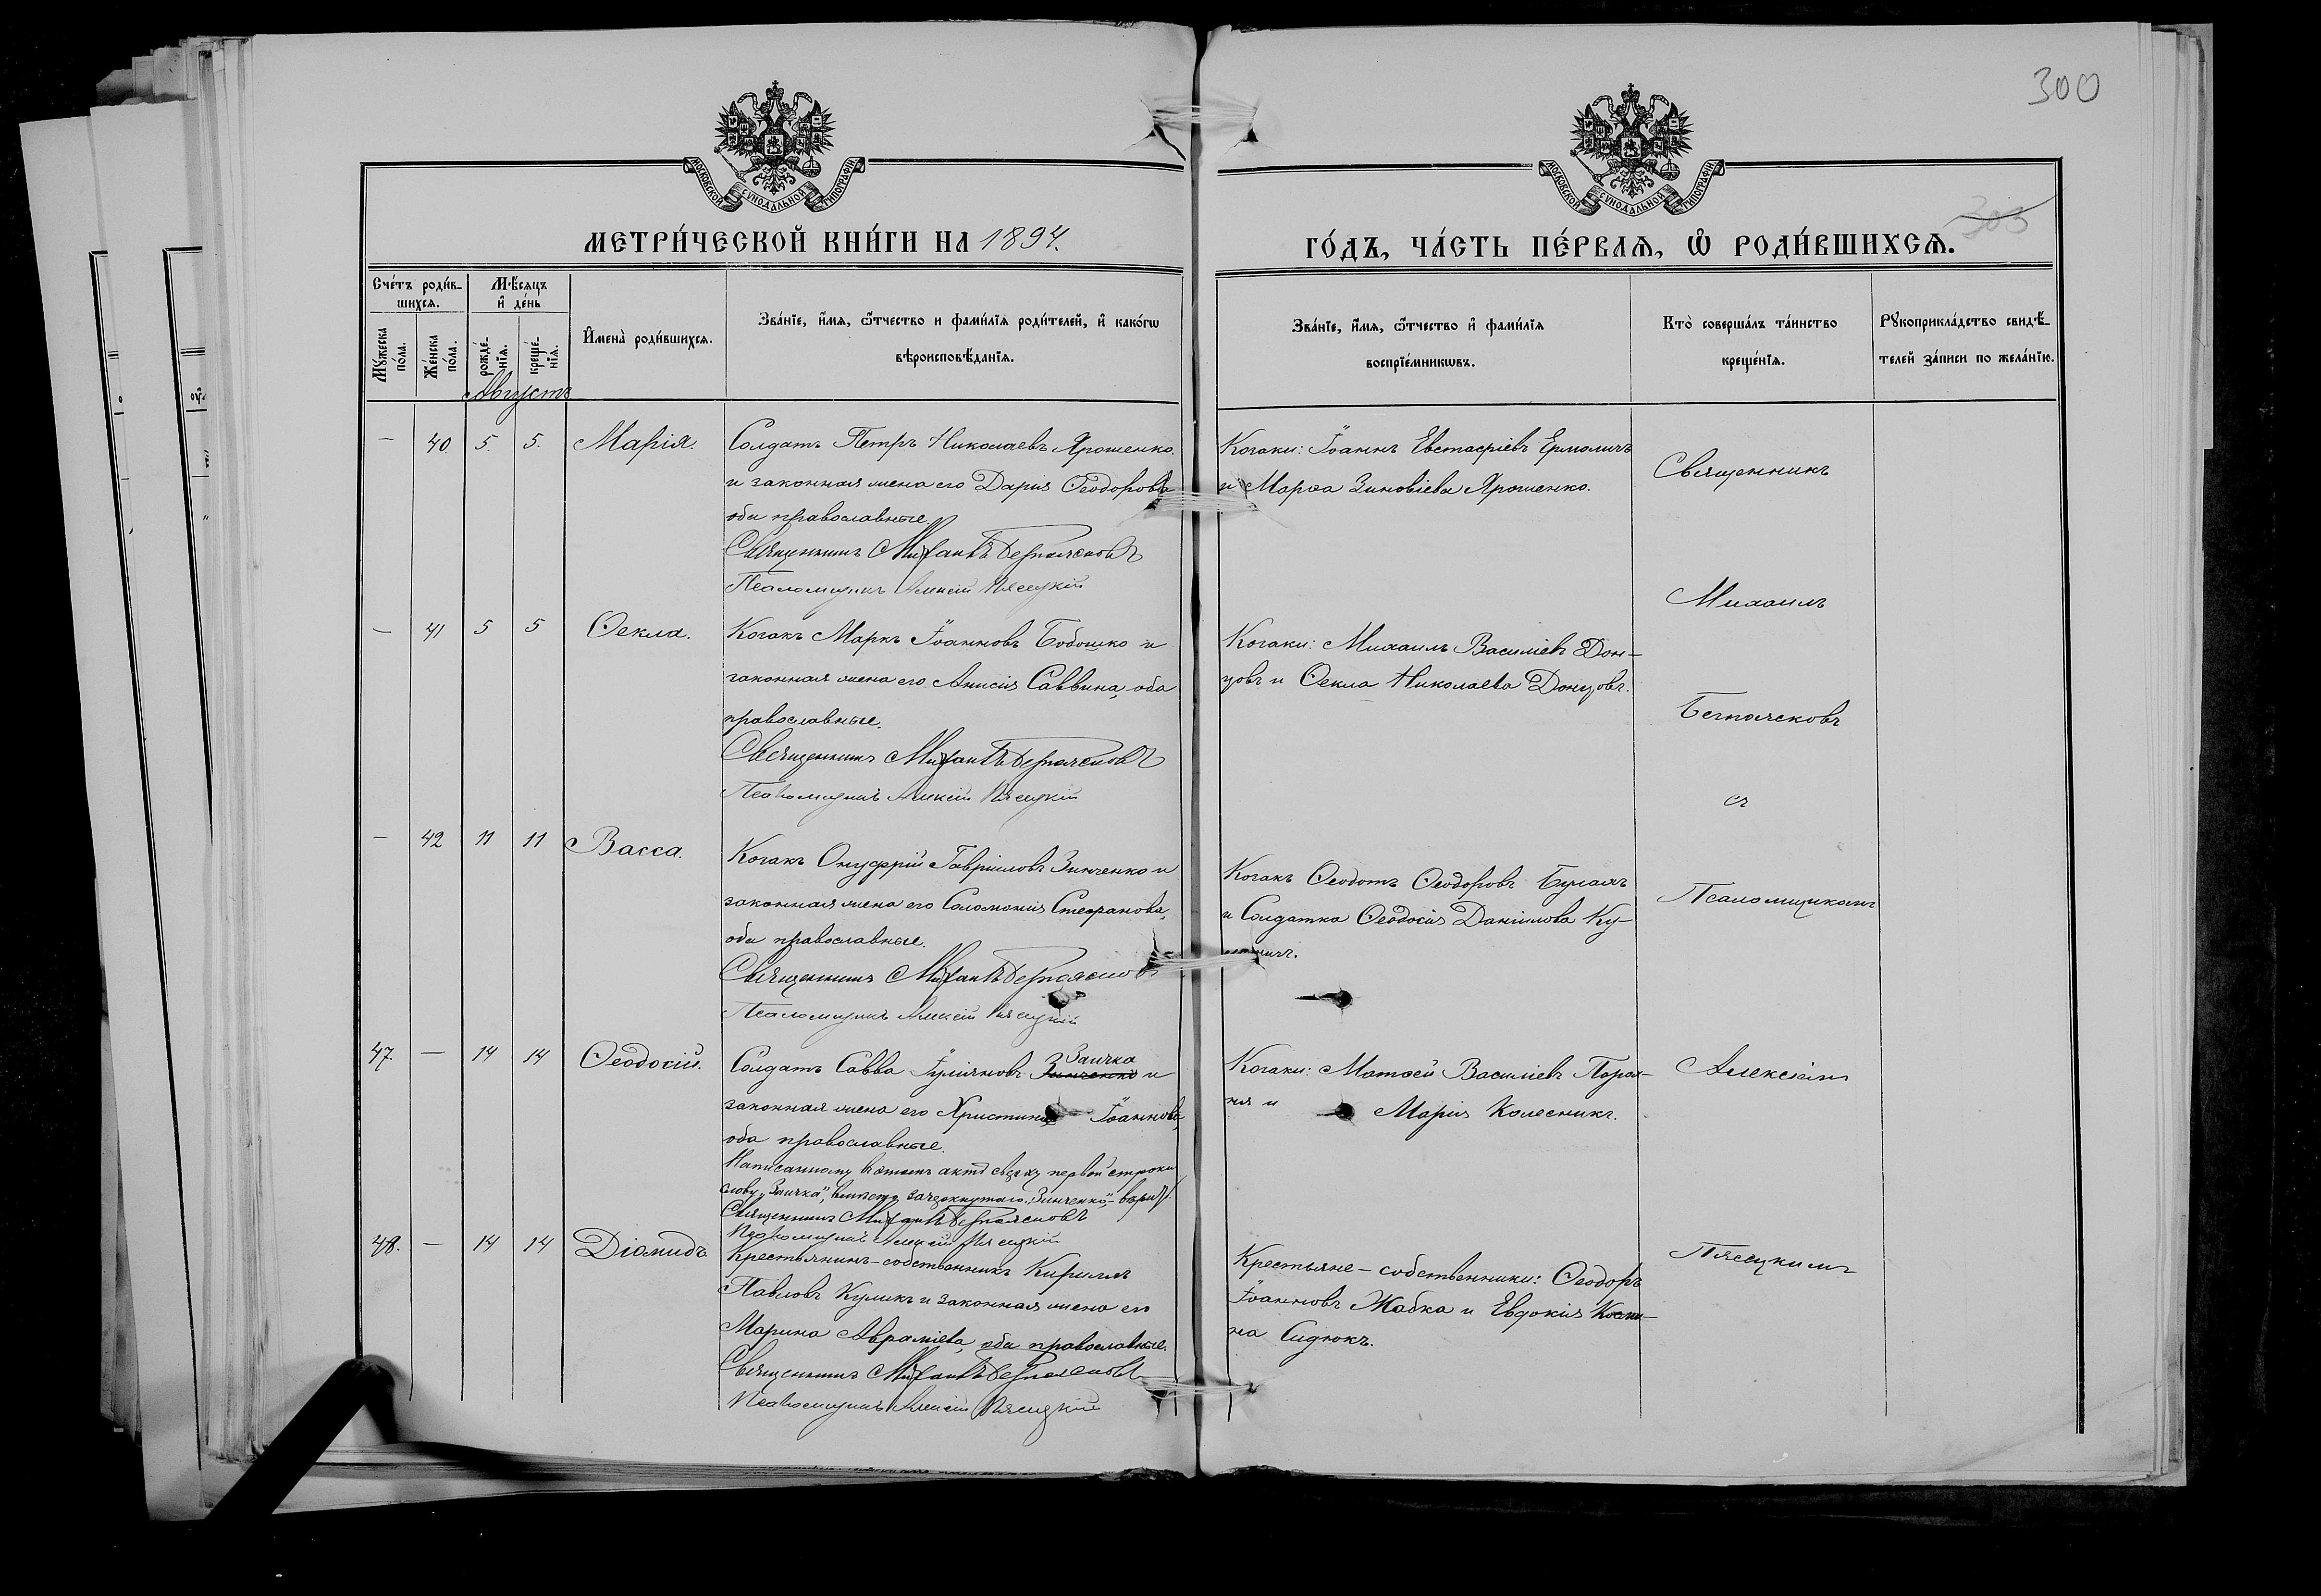 300
МОСКОВСКОЙ СѴНОДАЛЬНОЙ ТИПОГРАФІИ
МОСКОВСКОЙ СѴНОДАЛЬНОЙ ТИПОГРАФІИ
МЕТРИ́ЧЕСКОЙ КНИ́ГИ НА 1894.
ГО́ДЪ, ЧА́СТЬ ПЕ́РВАЯ, Ѡ РОДИ́ВШИХСЯ.
305
Сче́тъ роди́в-
шихся.
Мѣ́сяцъ
и де́нь
Мꙋ́жеска
по́ла.
Же́нска
по́ла.
рожде́-
нїя.
креще́-
нїя.
И҆мена̀ роди́вшихся.
Зва́нїе, и҆́мя, ѻ҆́тчество и фами́лїя роди́телей, и҆ како́гѡ
вѣроисповѣ́данїя.
Зва́нїе, и҆́мя, ѻ҆́тчество и҆ фами́лїя
воспрїе́мникѡвъ.
Кто̀ соверша́лъ та́инство
креще́нїя.
Рꙋкоприкла́дство свидѣ́-
телей за́писи по жела́нїю.
Августъ
— 40. 5. 5. Марія.
Солдатъ Петръ Николаевъ Ярошенко
и законная жена его Дарія Ѳеодорова
оба православные.
Священникъ Михаилъ
Псаломщикъ Алексій Пясецкій
Козаки: Іоаннъ Евстафіевъ Ермоличъ
и Марѳа Зиновіева Ярошенко.
Священникъ
Михаилъ
— 41 5 5 Ѳекла.
Козакъ Маркъ Іоанновъ Бобошко и
законная жена его Анисія Саввина, оба
православные.
Священникъ Михаилъ
Псаломщикъ Алексій Пясецкій
Козаки: Михаилъ Василіевъ Дон-
цовъ и Ѳекла Николаева Донцовъ.
съ
— 42 11 11 Васса.
Козакъ Онуфрій Гавріиловъ Зинченко и
законная жена его Соломонія Стефанова,
оба православные.
Священникъ Михаилъ
Псаломщикъ Алексій Пясецкій
Козакъ Ѳеодотъ Ѳеодоровъ
и Солдатка Ѳеодосія Даніилова
Псаломщикомъ
47. — 14 14 Ѳеодосій.
Заичка
Солдатъ Савва Іуліановъ Зинченко и
законная жена его Христина Іоаннова,
оба православные.
Написанному въ этомъ актѣ сверху первой строки
слову „Заичка", вмѣсто зачеркнутаго „Зинченко",- вѣрить.
Священникъ Михаилъ
Псаломщикъ Алексій Пясецкій
Козаки: Матѳей Василіевъ
и Марія Колесникъ.
Алексіемъ
48. — 14 14 Діомидъ
Крестьянинъ-собственникъ Кириллъ
Павловъ Куликъ и законная жена его
Марина Авраміева, оба православные.
Священникъ Михаилъ
Псаломщикъ Алексій Пясецкій
Крестьяне-собственники: Ѳеодоръ
Іоанновъ Жабка и Евдокія
Сидюкъ.
Пясецкимъ